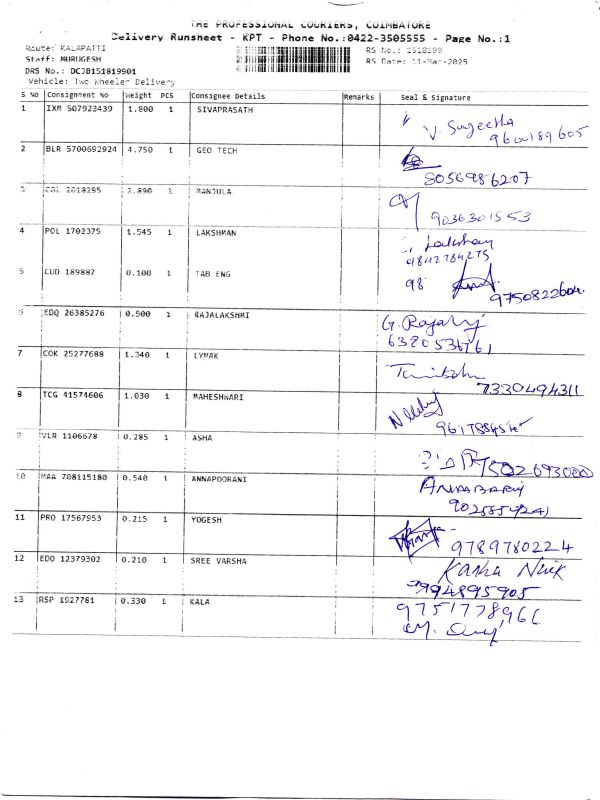 THE PROFESSIONAL COURIERS, COIMBATORE
Delivery Runsheet - KPT - Phone No.:0422-3505555 - Page No.:1
Route: KALAPATTI
RS No.: 1518199
Staff: MURUGESH
RS Date: 11-Mar-2025
DRS No.: DCJB151819901
Vehicle: Two Wheeler Delivery
S No Consignment No Weight PCS Consignee Details Remarks Seal & Signature
1 IXM 507923439 1.800 1 SIVAPRASATH
V. Sageetha
9600189605
2 BLR 5700692924 4.750 1 GEO TECH
8056986207
3 2018295 2.890 1 MANJULA
9036301553
4 POL 1702375 1.545 1 LAKSHMAN
Lakshman
9842784275
5 CUD 189887 0.100 1 TAB ENG
98
9750822604
6 EDQ 26385276 0.500 1 RAJALAKSHMI
G. Rajalaxmi
6380536761
7 COK 25277688 1.340 1 LYMAK
7330494311
8 TCG 41574606 1.030 1 MAHESHWARI
9 VLR 1106678 0.285 1 ASHA
7502693000
10 MAA 708115180 0.540 1 ANNAPOORANI
11 PRO 17567953 0.215 1 YOGESH
9789780224
12 EDO 12379302 0.210 1 SREE VARSHA
Kasha Naik
7994895905
13 RSP 1927781 0.330 1 KALA
9751778966